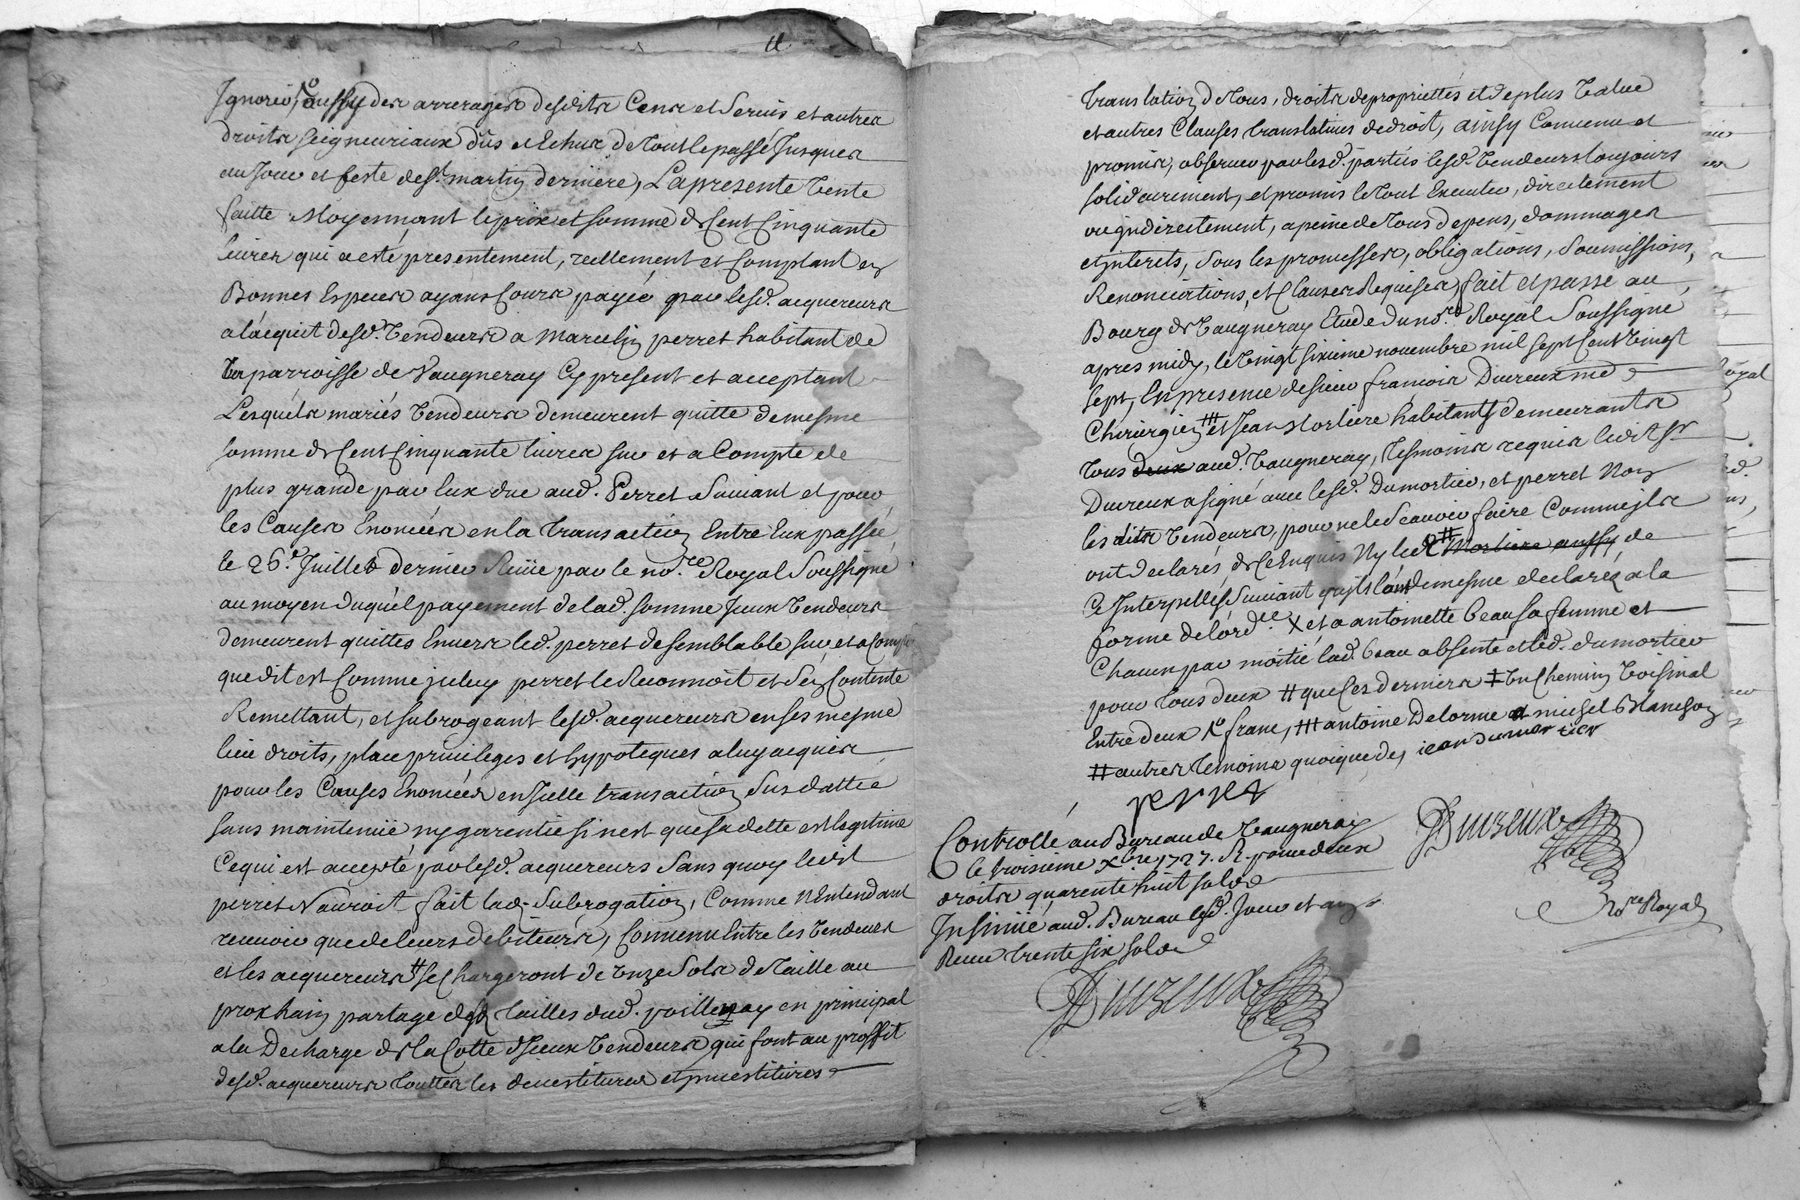 Ignorés, aussy des arrerages desdits Cens et servis et autres
droits seigneuriaux dus et Echus de tout le passé Jusques
au Jour et feste de St. martin derniere, La presente vente
faitte Moyennant le prix et somme de Cent Cinquante
livres qui a esté presentement, reellement et Comptant en
Bonnes Especes ayans Cours payée par lesd. acquereurs
a l'acquit desd. vendeurs a Marcelin perret habitant de
la parroisse de Vaugneray Cy present et acceptant
Lesquels mariés vendeurs demeurent quitte de mesme
somme de Cent Cinquante livres sur et a Compte de
plus grande par Eux due aud. Perret Suivant et pour
les Causes Enoncées en la transaction Entre Eux passée
le 26e. Juillet dernier Reüe par le no.re Royal Soussigné
au moyen duquel payement de lad. somme Iceux vendeurs
demeurent quittes Envers led. perret de semblable sur et a Compte
que dit est Comme iceluy perret le Reconnoit et s'en Contente
Remettant, et subrogeant lesd. acquereurs en ses mesme
lieu droits, place privileges et hypoteques a luy acquis
pour les Causes Enoncées en Icelle transaction Sus dattée
sans maintenüe ny garentie si n'est que sa dette est legitime
Ce qui est accepté par lesd. acquereurs Sans quoy ledit
perret N'auroit fait lad. Subrogation, Comme N'Entendant
recevoir que de leurs debiteurs, Convenu Entre les vendeurs
et les acquereurs # se Chargeront de onze Sols de Taille au
prochain partage des tailles dud. en principal
a la Decharge de la Cotte d'Iceux vendeurs qui font au proffit
desd. acquereurs touttes les devestitures et investitures
translation de tous, droits de proprietés et de plus value
et autres Clauses translatives de droit, ainsy Convenu et
promis, observer par lesd. parties lesd. vendeurs toujours
solidairement, et promis le tout Executer, directement
ou indirectement, a peine de tous depens, dommages
et interets, sous les promesses, obligations, soumissions,
Renonciations, et Clauses Requises, fait et passé au
Bourg de Vaugneray Etude du no.re Royal Soussigné
apres midy, le vingt sixieme novembre mil sept Cent vingt
sept, En presence de sieur françois Duvreux me
Chirurgien ## et Jean Morliere habitants demeurants
tous deux aud. Vaugneray, tesmoins requis ledit Sr
Duvreux a signé avec lesd. Dumortier, et perret Non
lesdits vendeurs, pour ne le scavoir faire Comme ils
ont declarés de Ce Enquis Ny led # Morliere aussy de
Ce Interpellés suivant qu'ils l'ont de mesme declarés a la
forme de l'ord.ce X et a antoinette Beau sa femme et
Chacun par moitié lad. Beau absente et led. dumortier
pour tous deux # que Ces derniers ‡ un Chemin voisinal
Entre deux franc, ## antoine Delorme et michel Blanchon
# autres temoins quoique de, iean dumortier
perret
Controllé au Bureau de Vaugneray
le troisieme Xbre 1727. R. pour deux
droits quarente huit sols
Insinüé aud. Bureau led. Jour et an
Receu trente six sols
Duvreux
Duvreux
n.re Royal